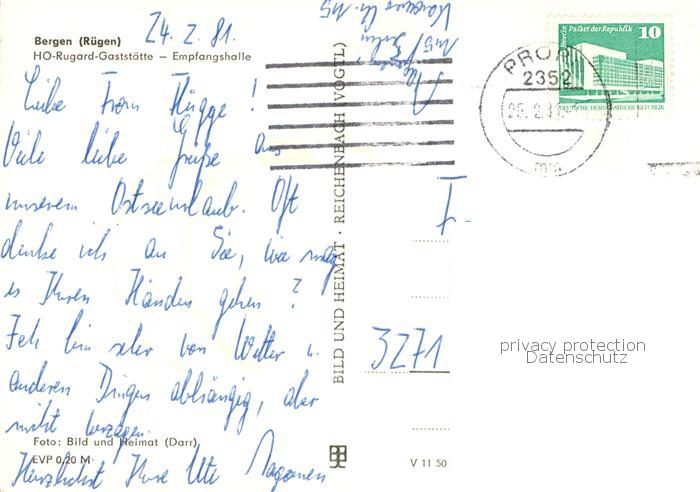 Bergen (Rügen) 24. 2. 81.
HO-Rugard-Gaststätte – Empfangshalle
Liebe Frau Flügge!
Viele liebe Grüße aus
unserem Ostseeurlaub. Oft
denke ich an Sie, wie mag
es Ihren Händen gehen?
Ich bin sehr von Wetter u.
anderen Dingen abhängig, aber
nicht verzagen.
Foto: Bild und Heimat (Darr)
EVP 0,20 M
Herzlichst Ihre Ute
BILD UND HEIMAT · REICHENBACH (VOGTL)
V 11 50
3271
Berlin, Palast der Republik 10
DEUTSCHE DEMOKRATISCHE REPUBLIK
PRORA
2352
25. 2. 81
privacy protection
Datenschutz